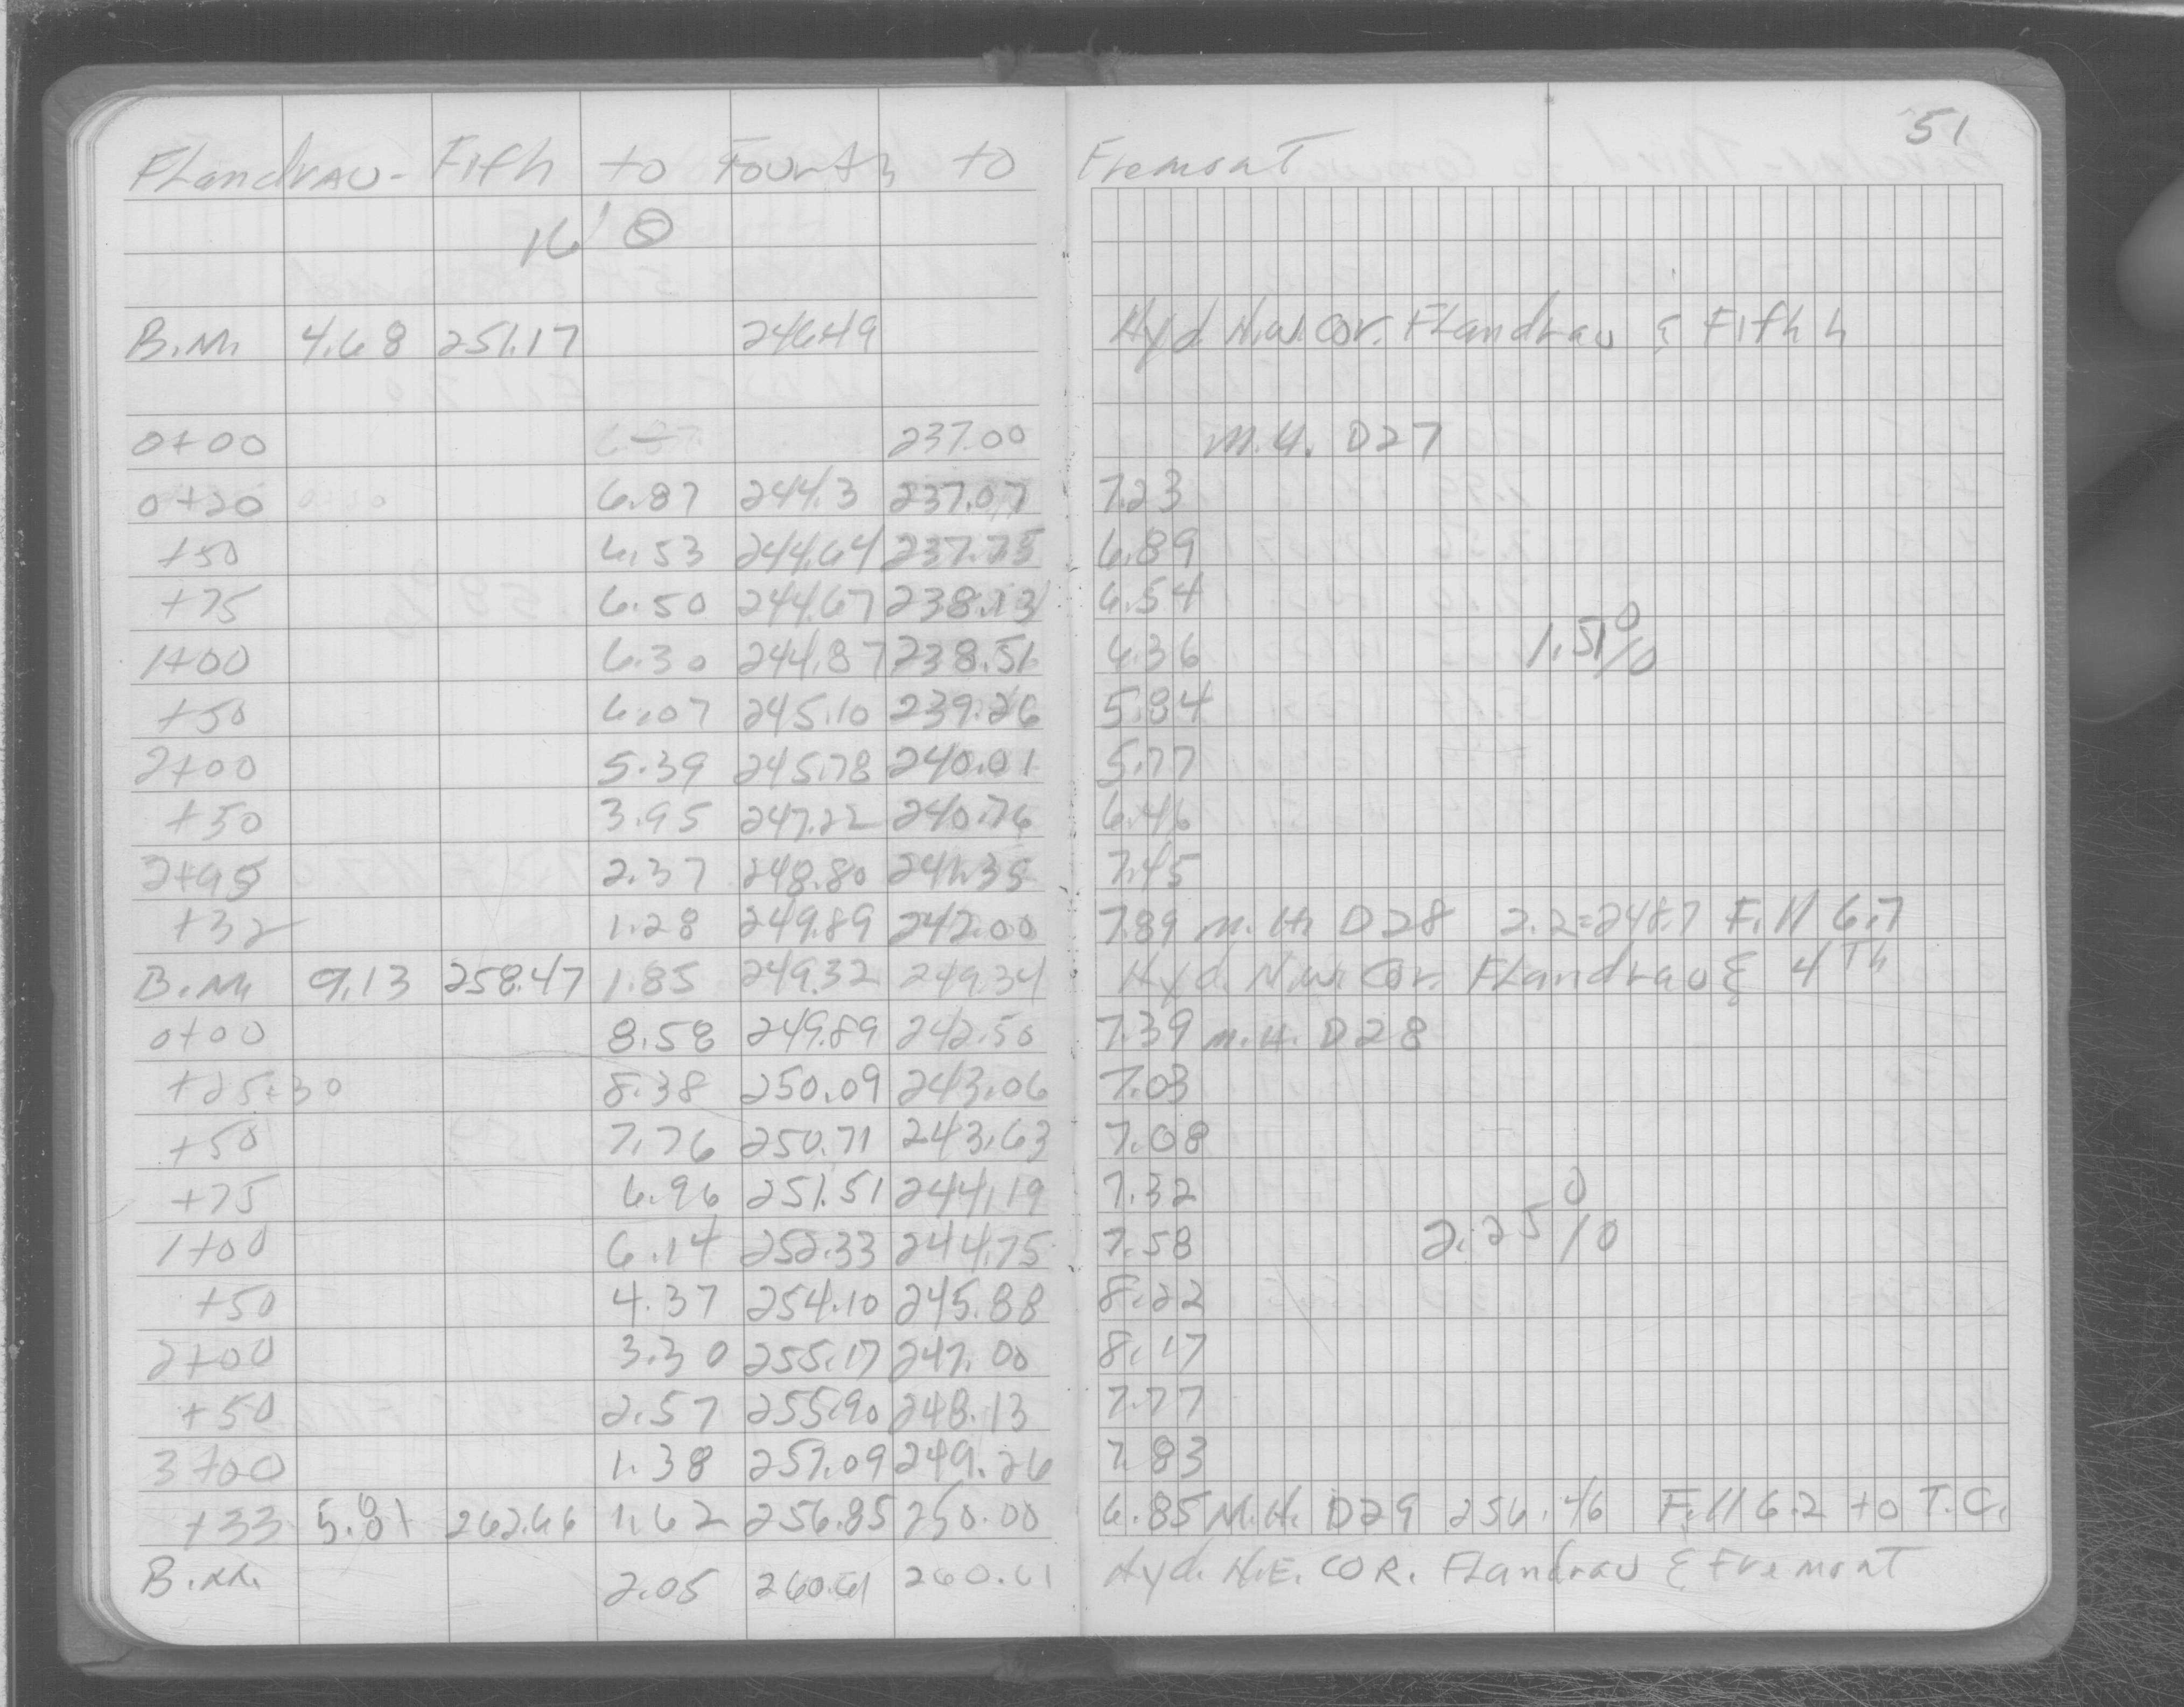 51
Flandrau - Fifth to Fourth to Fremont
16' ⊖
B.M. 4.68 251.17 246.49 Hyd. N.W. Cor. Flandrau & Fifth
0+00 237.00 M.H. D27
0+20 6.87 244.3 237.07 7.23
+50 6.53 244.64 237.75 6.89
+75 6.50 244.67 238.13 6.54
1+00 6.30 244.87 238.51 6.36 1.51%
+50 6.07 245.10 239.26 5.84
2+00 5.39 245.78 240.01 5.77
+50 3.95 247.22 240.76 6.46
2+95 2.37 248.80 241.35 7.45
+32 1.28 249.89 242.00 7.89 M.H. D28 2.2=248.7 Fill 6.7
B.M. 9.13 258.47 1.85 249.32 249.34 Hyd. N.W. Cor. Flandrau & 4th
0+00 8.58 249.89 242.50 7.39 M.H. D28
+25 8.38 250.09 243.06 7.03
+50 7.76 250.71 243.63 7.08
+75 6.96 251.51 244.19 7.32
1+00 6.14 252.33 244.75 7.58 2.25%
+50 4.37 254.10 245.88 8.22
2+00 3.30 255.17 247.00 8.17
+50 2.57 255.90 248.13 7.77
3+00 1.38 257.09 249.26 7.83
+33 5.81 262.66 1.62 256.85 250.00 6.85 M.H. D29 256.46 Fill 6.2 to T.C.
B.M. 2.05 260.61 260.61 Hyd. N.E. COR. Flandrau & Fremont